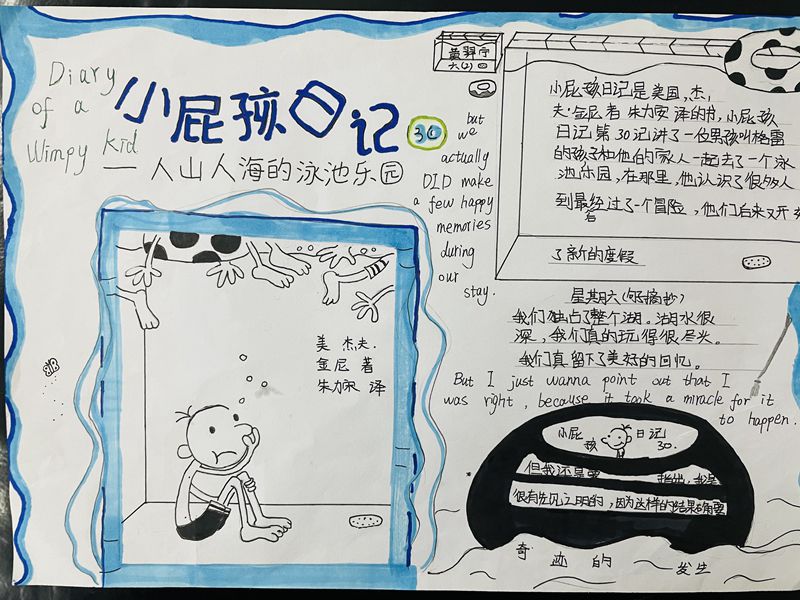 Diary
of a
Wimpy Kid
小屁孩日记
30
— 人山人海的泳池乐园
美 杰夫.
金尼 著
朱力安 译
but
we
actually
DID make
a few happy
memories
during
our
stay.
六(2)
小屁孩日记是美国，杰，
夫·金尼 者 朱力安 译的书，小屁孩
日记第30记讲了一位男孩叫格雷
的孩子和他的家人一起去了一个泳
池乐园，在那里，他认识了很多人
到最后经过了一个冒险，他们后来又开
了新的度假
星期六（好摘抄）
我们独占了整个湖。湖水很
深，我们真的玩得很尽兴。
我们真留下了美好的回忆。
But I just wanna point out that I
was right, because it took a miracle for it
to happen.
小屁孩日记
30.
但我还是要 指出，我是
很有先见之明的，因为这样的结果确需要
奇迹的 发生